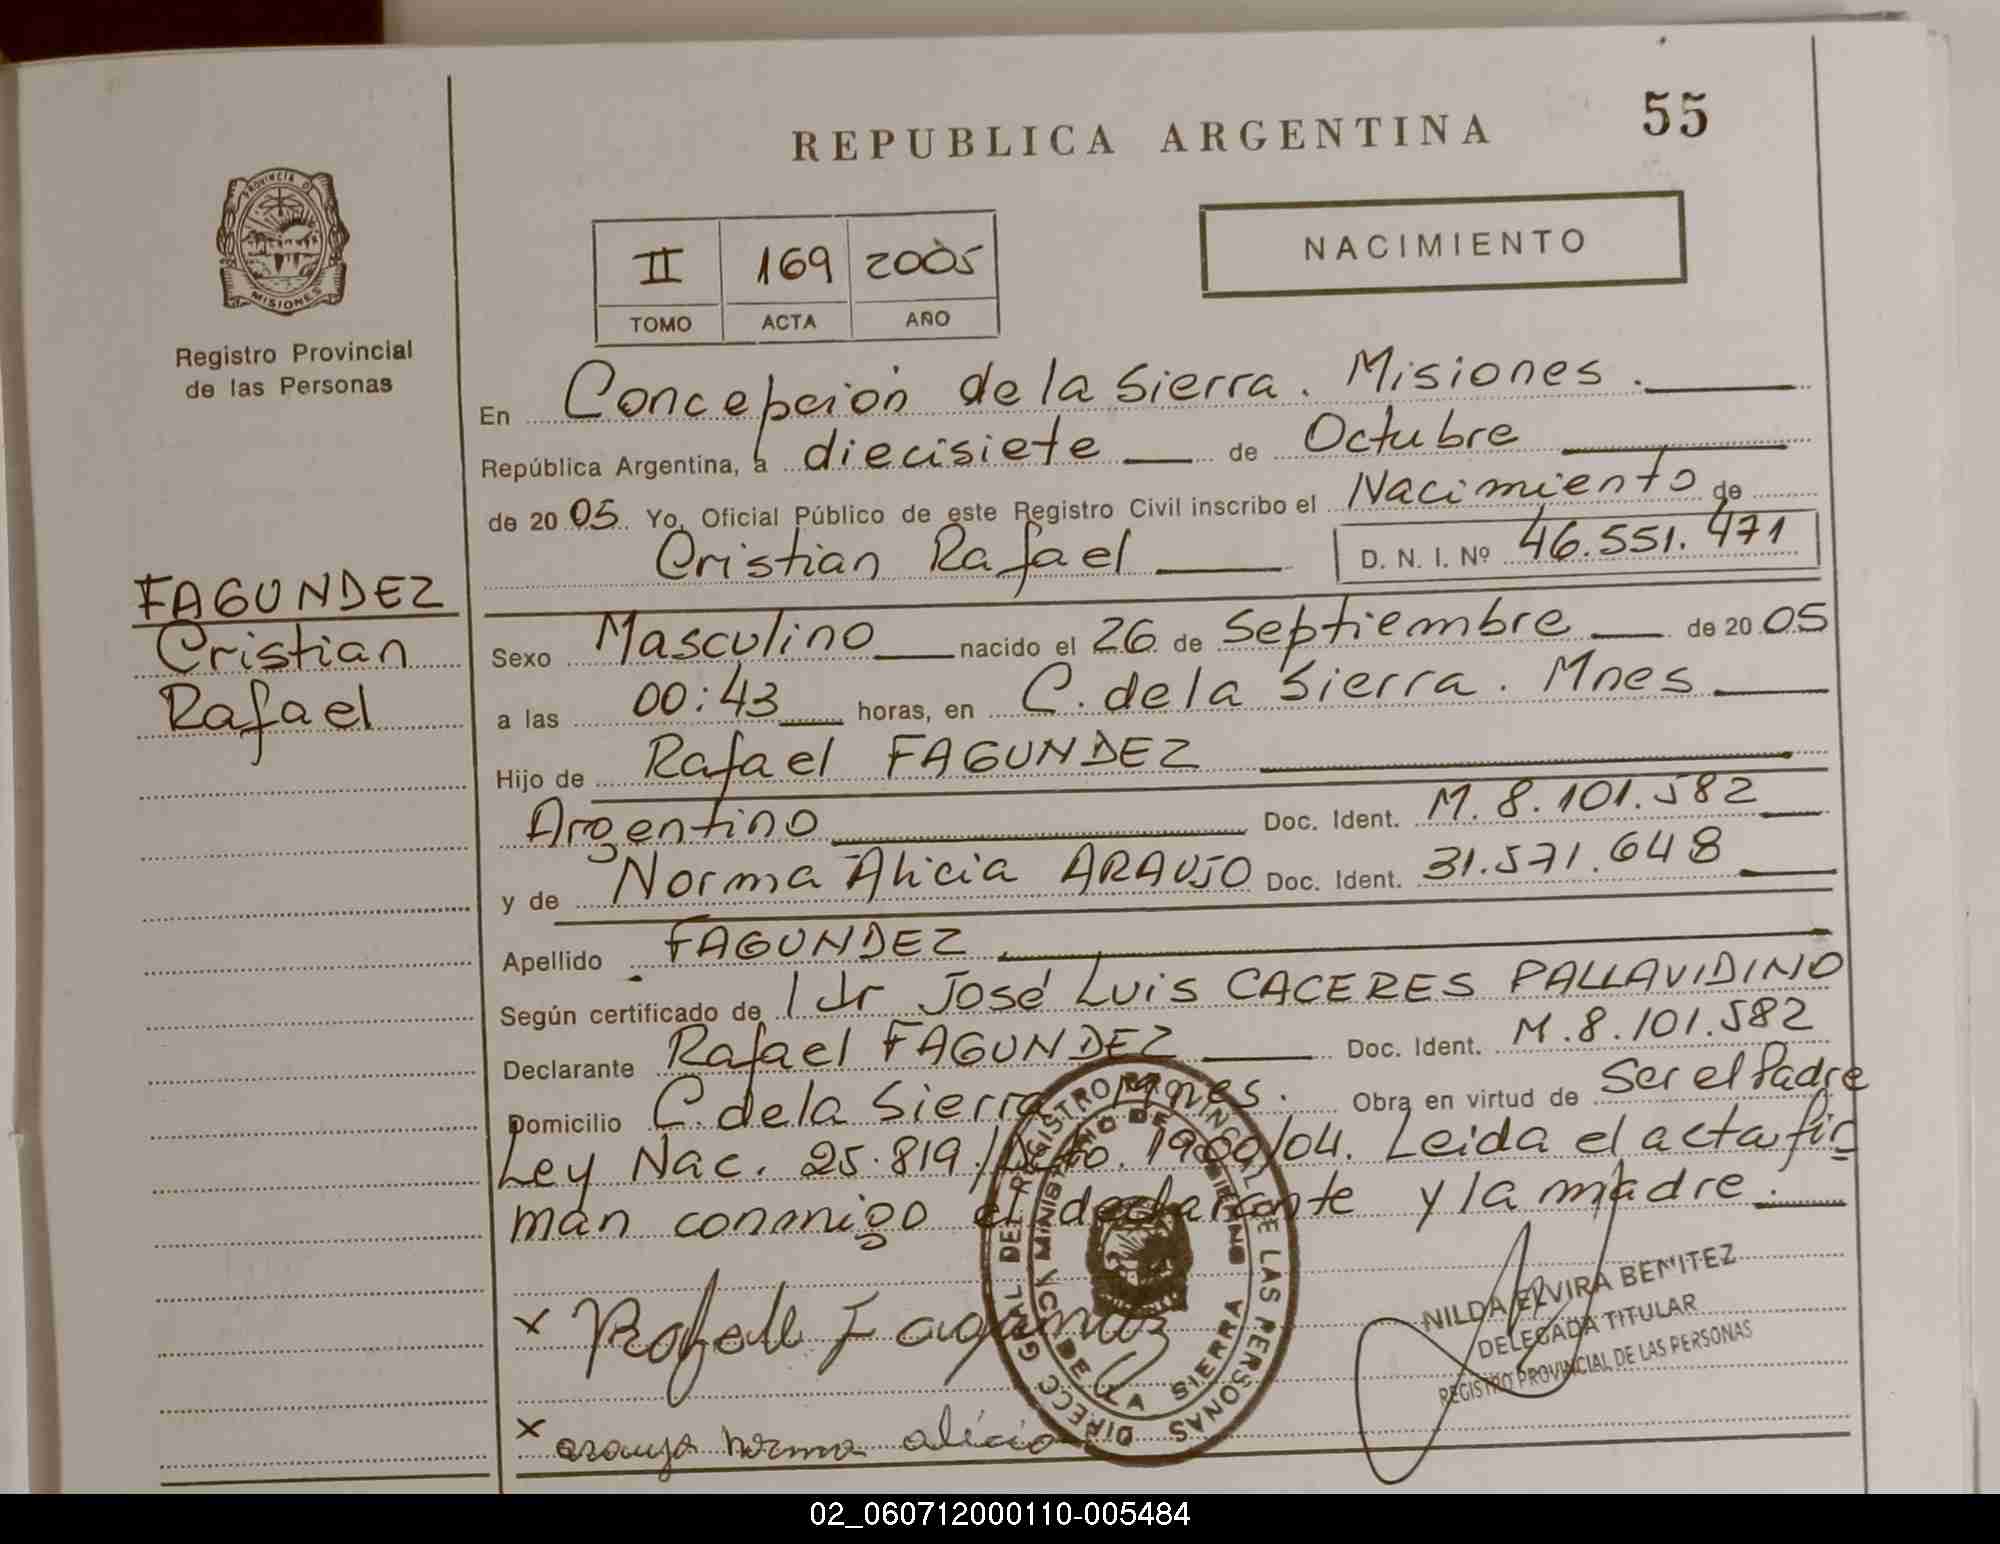 55
REPUBLICA ARGENTINA
PROVINCIA D
MISIONES
Registro Provincial
de las Personas
II 169 2005
TOMO ACTA AÑO
NACIMIENTO
En Concepción de la Sierra. Misiones.
República Argentina, a diecisiete de Octubre
de 2005 Yo, Oficial Público de este Registro Civil inscribo el Nacimiento de
Cristian Rafael D. N. I. Nº 46.551.471
FAGUNDEZ
Cristian
Rafael
Sexo Masculino nacido el 26 de Septiembre de 2005
a las 00:43 horas, en C. de la Sierra. Mnes
Hijo de Rafael FAGUNDEZ
Argentino Doc. Ident. M. 8.101.582
y de Norma Alicia ARAUJO Doc. Ident. 31.571.648
Apellido FAGUNDEZ
Según certificado de José Luis CACERES PALLAVIDINO
Declarante Rafael FAGUNDEZ Doc. Ident. M.8.101.582
Domicilio C. de la Sierra Mnes. Obra en virtud de Ser el Padre
Ley Nac. 25.819./Dcto. 1900/04. Leida el acta fir
man conmigo el declarante y la madre.
DIRECC GRAL DEL REGISTRO PROVINCIAL DE LAS PERSONAS
MINISTERIO DE GOBIERNO
DE LA SIERRA
NILDA ELVIRA BENITEZ
DELEGADA TITULAR
REGISTRO PROVINCIAL DE LAS PERSONAS
x Rafael Fagundez
x araujo norma alicia
02_060712000110-005484